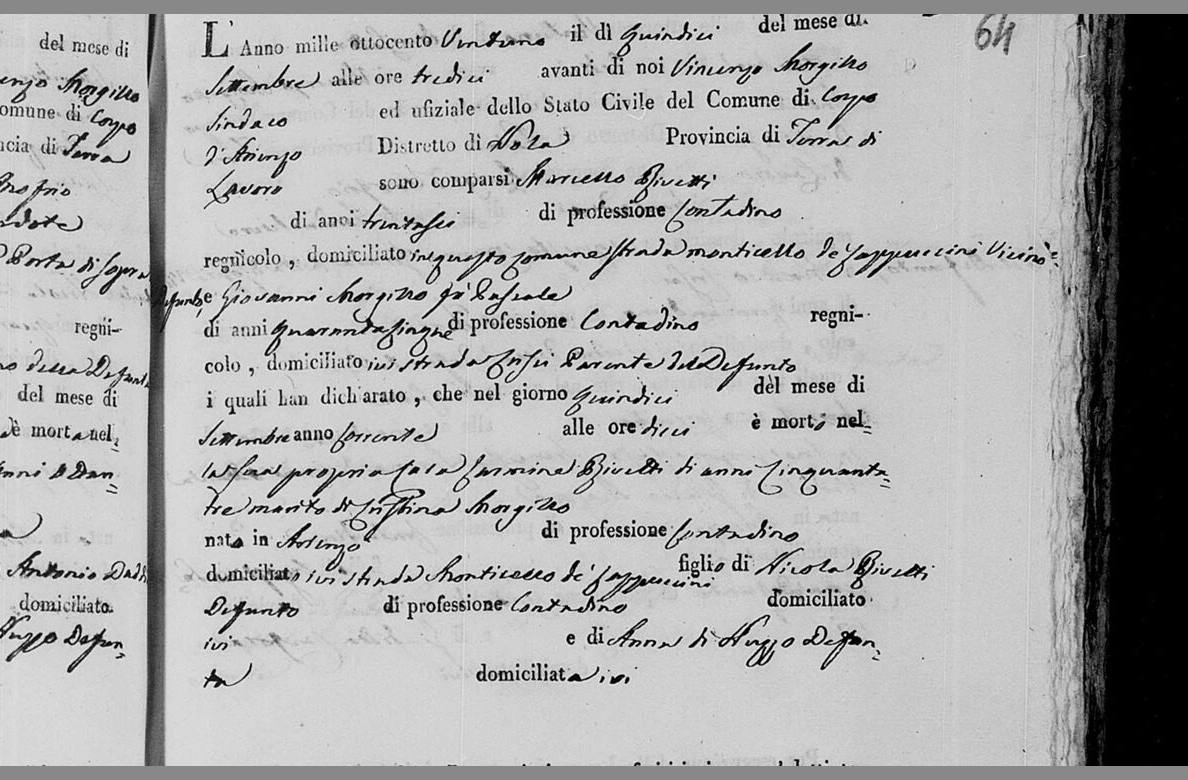 del mese di
Morgillo
omune di Corpo
ncia di Terra
nofrio
regni-
del mese di
è morta nel=
Antonio
domiciliato
Nuzzo Defun=
64
L'Anno mille ottocento Ventuno il dì Quindici del mese di
Settembre alle ore tredici avanti di noi Vincenzo Morgillo
Sindaco ed ufiziale dello Stato Civile del Comune di Corpo
d'Arienzo Distretto di Nola Provincia di Terra di
Lavoro sono comparsi Marcello Bivetti
di anni trentasei di professione Contadino
regnicolo, domiciliato in questo Comune strada monticello de' Cappuccini Vicino=
Defunto, e Giovanni Morgillo fù Pascale
di anni Quarantacinque di professione Contadino regni-
colo, domiciliato ivi strada Crisci Parente del Defunto
i quali han dichiarato, che nel giorno Quindici del mese di
Settembre anno Corrente alle ore dieci è morto nel=
la sua propria Casa Carmine Bivetti di anni Cinquanta=
tre marito di Cristina Morgillo
nato in Arienzo di professione Contadino
domiciliato ivi strada Monticello de' Cappuccini figlio di Nicola Bivetti
Defunto di professione Contadino domiciliato
ivi e di Anna di Nuzzo Defun=
ta domiciliata ivi